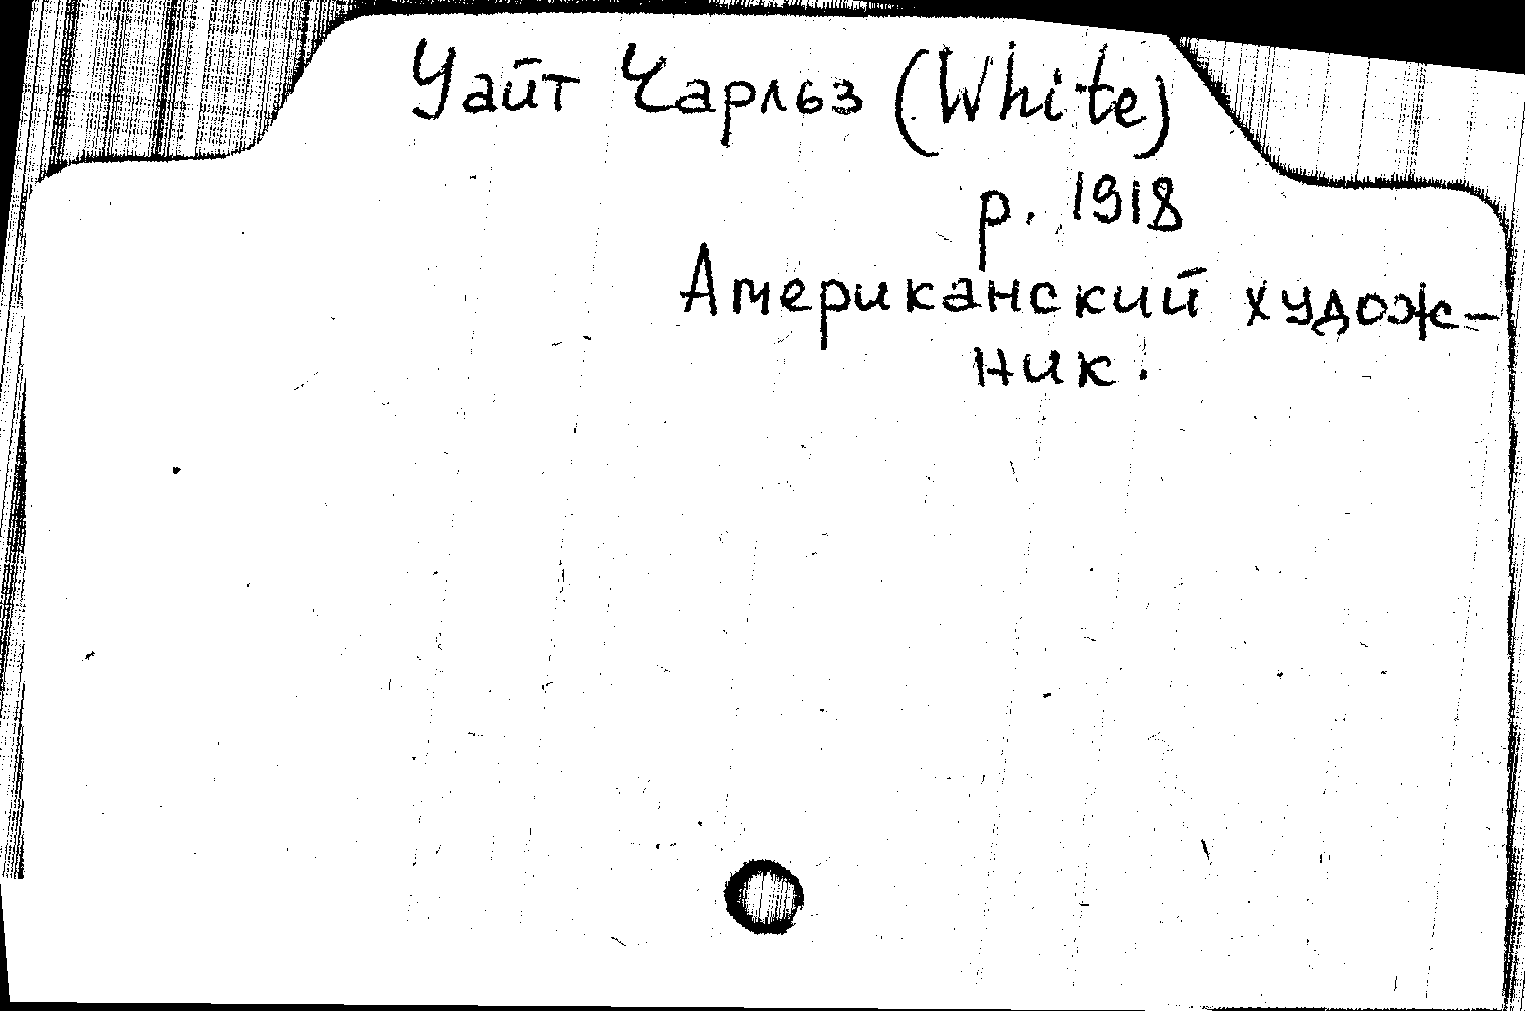 Уайт Чарльз (White)
р. 1918
Американский худож-
ник.